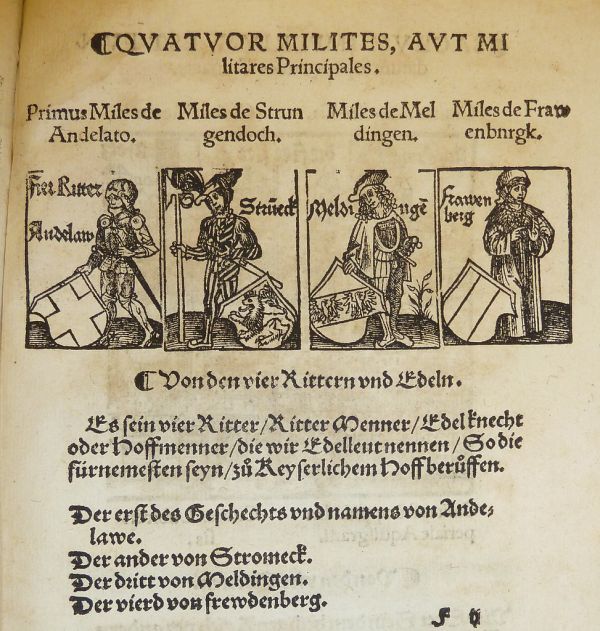 QVATVOR MILITES, AVT MI
litares Principales.
Primus Miles de
Andelato.
Miles de Strun
gendoch.
Miles de Mel
dingen.
Miles de Fraw
enbnrgk.
Ritter
Andelaw
Strũeck
Meldi
ngẽ
Frawen
berg
Von den vier Rittern vnd Edeln.
Es sein vier Ritter/Ritter Menner/Edel knecht
oder Hoffmenner/die wir Edelleut nennen/So die
fürnemesten seyn/zů Keyserlichem Hoff berůffen.
Der erst des Geschechts vnd namens von Ande-
lawe.
Der ander von Stromeck.
Der dritt von Meldingen.
Der vierd von frewdenberg.